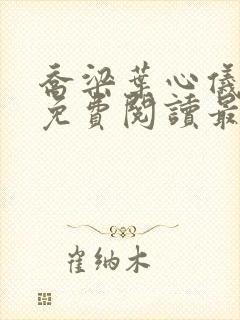 喬梁葉心儀
免費閱讀最
崔納木